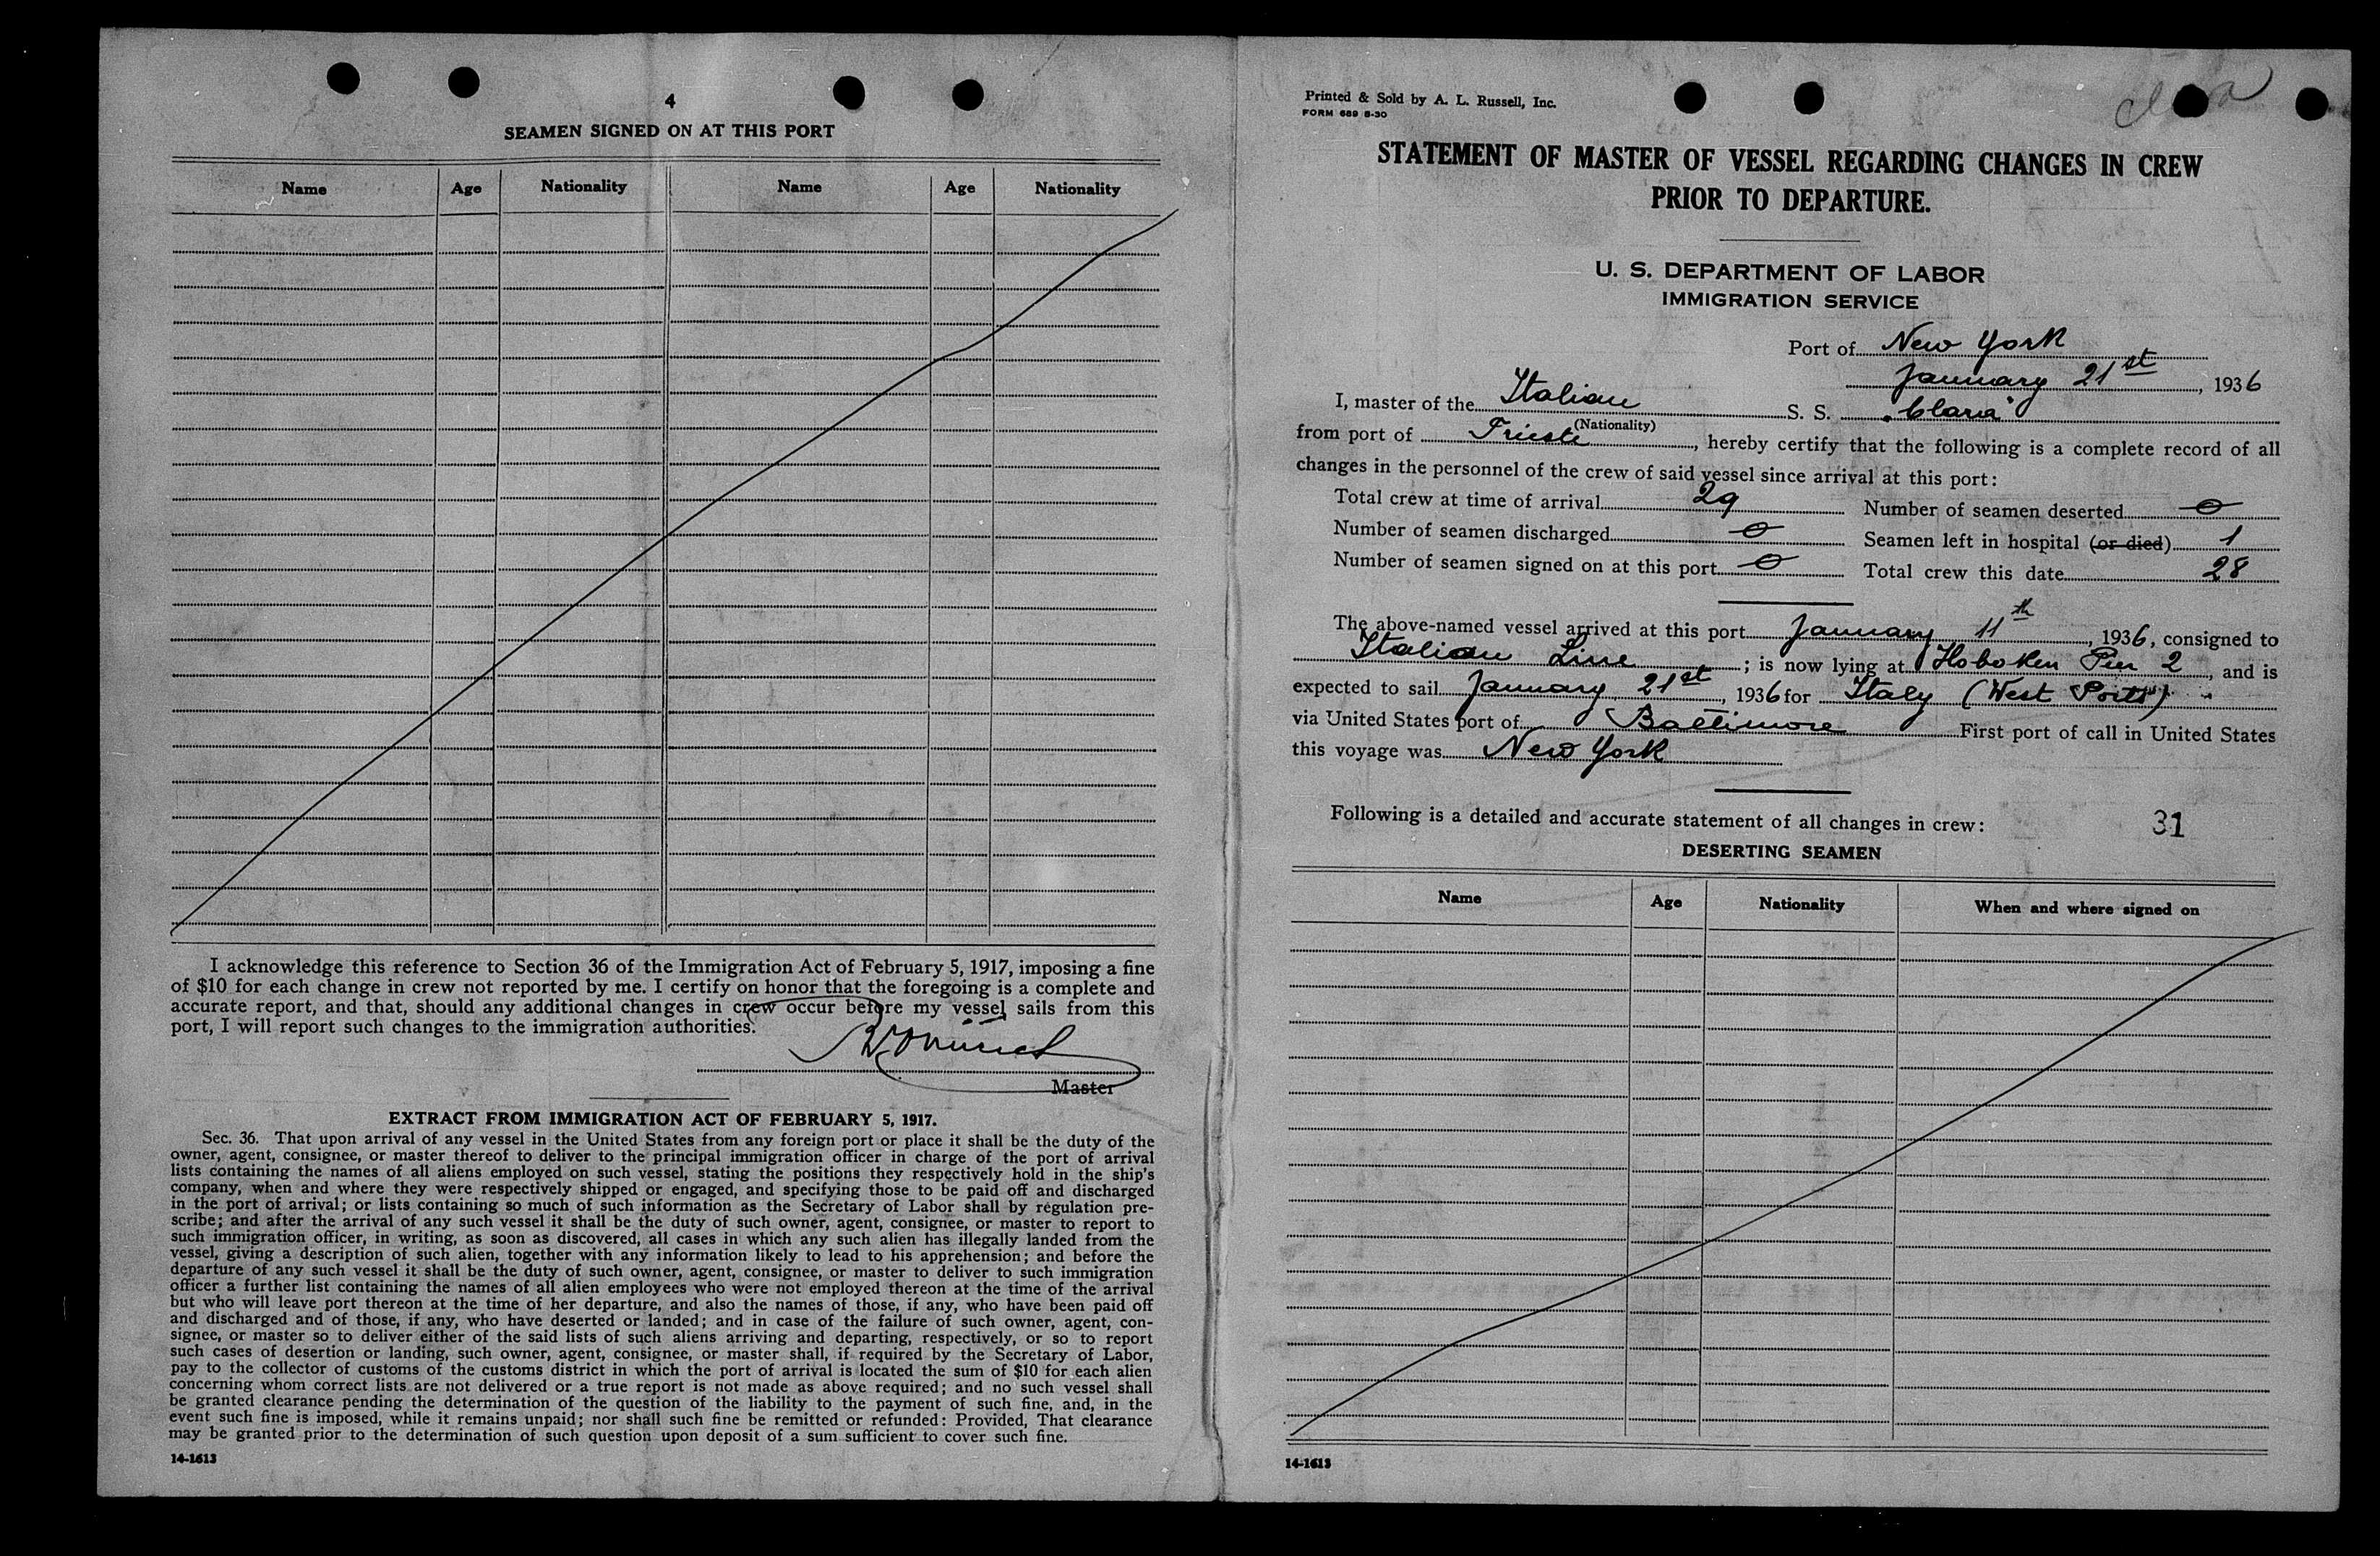 4
SEAMEN SIGNED ON AT THIS PORT
Name Age Nationality Name Age Nationality
I acknowledge this reference to Section 36 of the Immigration Act of February 5, 1917, imposing a fine
of $10 for each change in crew not reported by me. I certify on honor that the foregoing is a complete and
accurate report, and that, should any additional changes in crew occur before my vessel sails from this
port, I will report such changes to the immigration authorities.
Master
EXTRACT FROM IMMIGRATION ACT OF FEBRUARY 5, 1917.
Sec. 36. That upon arrival of any vessel in the United States from any foreign port or place it shall be the duty of the
owner, agent, consignee, or master thereof to deliver to the principal immigration officer in charge of the port of arrival
lists containing the names of all aliens employed on such vessel, stating the positions they respectively hold in the ship's
company, when and where they were respectively shipped or engaged, and specifying those to be paid off and discharged
in the port of arrival; or lists containing so much of such information as the Secretary of Labor shall by regulation pre-
scribe; and after the arrival of any such vessel it shall be the duty of such owner, agent, consignee, or master to report to
such immigration officer, in writing, as soon as discovered, all cases in which any such alien has illegally landed from the
vessel, giving a description of such alien, together with any information likely to lead to his apprehension; and before the
departure of any such vessel it shall be the duty of such owner, agent, consignee, or master to deliver to such immigration
officer a further list containing the names of all alien employees who were not employed thereon at the time of the arrival
but who will leave port thereon at the time of her departure, and also the names of those, if any, who have been paid off
and discharged and of those, if any, who have deserted or landed; and in case of the failure of such owner, agent, con-
signee, or master so to deliver either of the said lists of such aliens arriving and departing, respectively, or so to report
such cases of desertion or landing, such owner, agent, consignee, or master shall, if required by the Secretary of Labor,
pay to the collector of customs of the customs district in which the port of arrival is located the sum of $10 for each alien
concerning whom correct lists are not delivered or a true report is not made as above required; and no such vessel shall
be granted clearance pending the determination of the question of the liability to the payment of such fine, and, in the
event such fine is imposed, while it remains unpaid; nor shall such fine be remitted or refunded: Provided, That clearance
may be granted prior to the determination of such question upon deposit of a sum sufficient to cover such fine.
14-1613
Printed & Sold by A. L. Russell, Inc.
FORM 689 8-30
STATEMENT OF MASTER OF VESSEL REGARDING CHANGES IN CREW
PRIOR TO DEPARTURE.
U. S. DEPARTMENT OF LABOR
IMMIGRATION SERVICE
Port of New York
January 21st, 1936
I, master of the Italian S. S. "Clara"
(Nationality)
from port of Trieste, hereby certify that the following is a complete record of all
changes in the personnel of the crew of said vessel since arrival at this port:
Total crew at time of arrival 29 Number of seamen deserted 0
Number of seamen discharged 0 Seamen left in hospital (or died) 1
Number of seamen signed on at this port 0 Total crew this date 28
The above-named vessel arrived at this port January 11th, 1936, consigned to
Italian Line; is now lying at Hoboken Pier 2, and is
expected to sail January 21st, 1936 for Italy (West Ports)
via United States port of Baltimore First port of call in United States
this voyage was New York
Following is a detailed and accurate statement of all changes in crew: 31
DESERTING SEAMEN
Name Age Nationality When and where signed on
14-1613